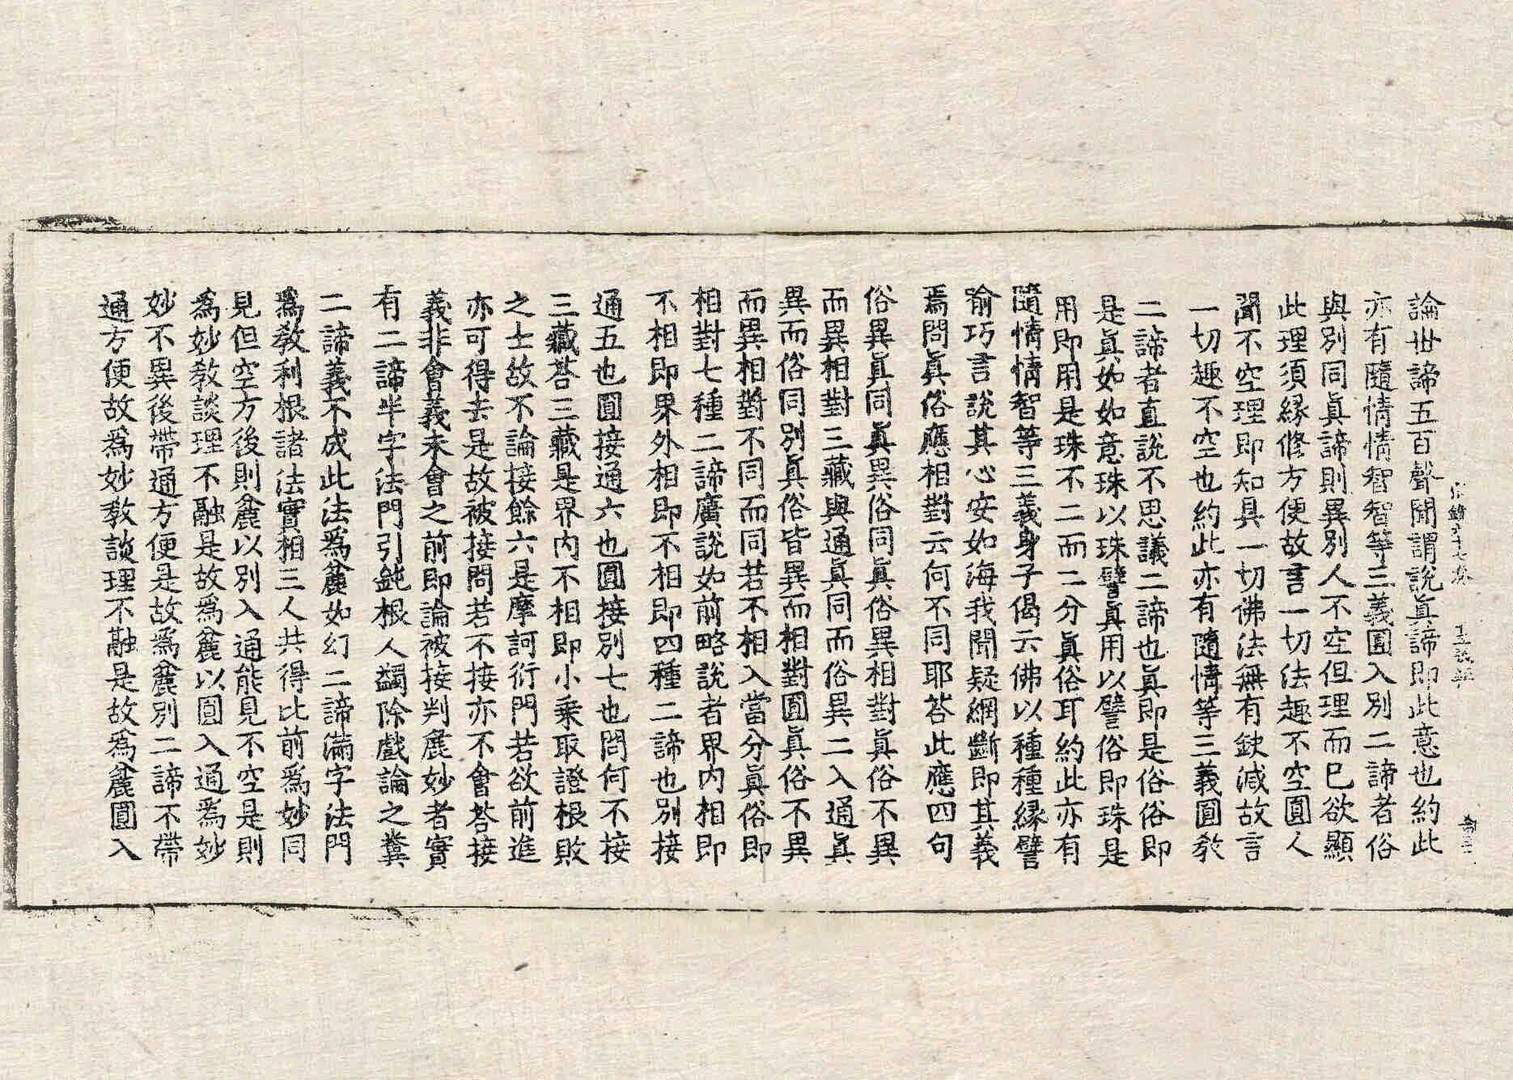 論世諦五百聲聞謂說眞諦即此意也約此
亦有隨情情智智等三義圓入別二諦者俗
與別同眞諦則異別人不空但理而已欲顯
此理須緣修方便故言一切法趣不空圓人
聞不空理即知具一切佛法無有缺減故言
一切趣不空也約此亦有隨情等三義圓教
二諦者直說不思議二諦也眞即是俗俗即
是眞如如意珠以珠譬眞用以譬俗即珠是
用即用是珠不二而二分眞俗耳約此亦有
隨情情智等三義身子偈云佛以種種緣譬
喻巧言說其心安如海我聞疑網斷即其義
焉問眞俗應相對云何不同耶荅此應四句
俗異眞同眞異俗同眞俗異相對眞俗不異
而異相對三藏與通眞同而俗異二入通眞
異而俗同別眞俗皆異而相對圓眞俗不異
而異相對不同而同若不相入當分眞俗即
相對七種二諦廣說如前略說者界內相即
不相即界外相即不相即四種二諦也別接
通五也圓接通六也圓接別七也問何不接
三藏荅三藏是界內不相即小乘取證根敗
之士故不論接餘六是摩訶衍門若欲前進
亦可得去是故被接問若不接亦不會荅接
義非會義未會之前即論被接判麁妙者實
有二諦半字法門引鈍根人蠲除戲論之糞
二諦義不成此法爲麁如幻二諦滿字法門
爲教利根諸法實相三人共得比前爲妙同
見但空方後則麁以別入通能見不空是則
爲妙教談理不融是故爲麁以圓入通爲妙
妙不異後帶通方便是故爲麁別二諦不帶
通方便故爲妙教談理不融是故爲麁圓入